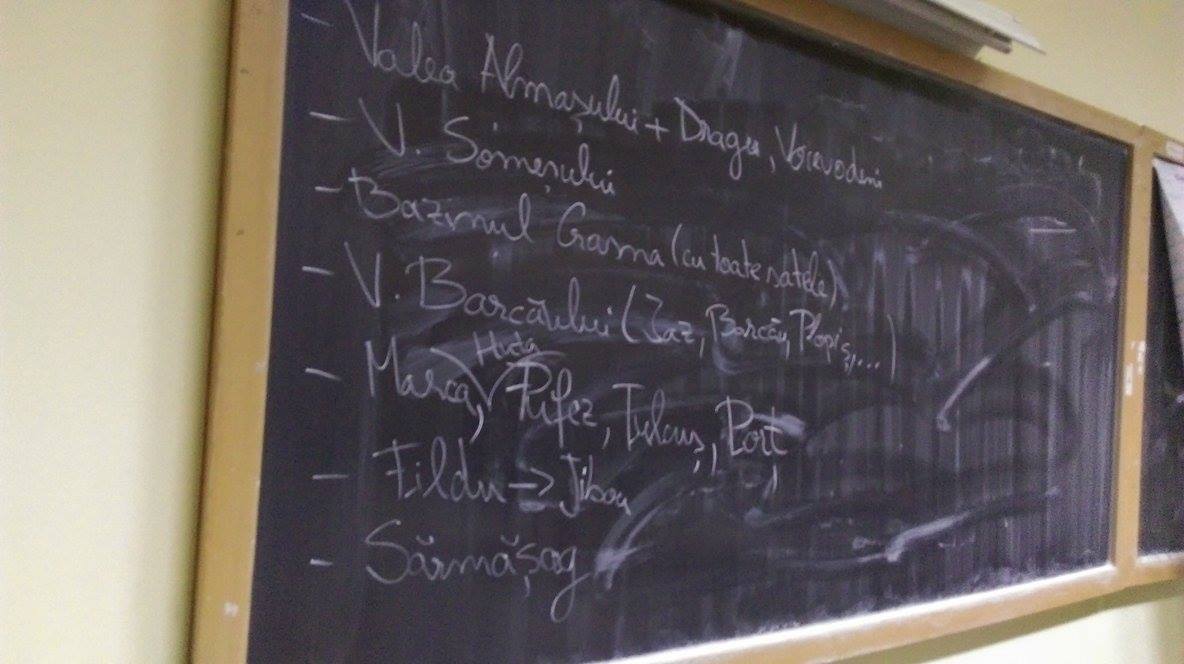 - Valea Almașului + Dragu, Voievodeni
- V. Someșului
- Bazinul Crasna (cu toate satele)
- V. Barcăului (Iaz, Barcău, Plopiș,...)
Huta
- Marca, Port
- Fildu -> Jibou
- Sărmășag